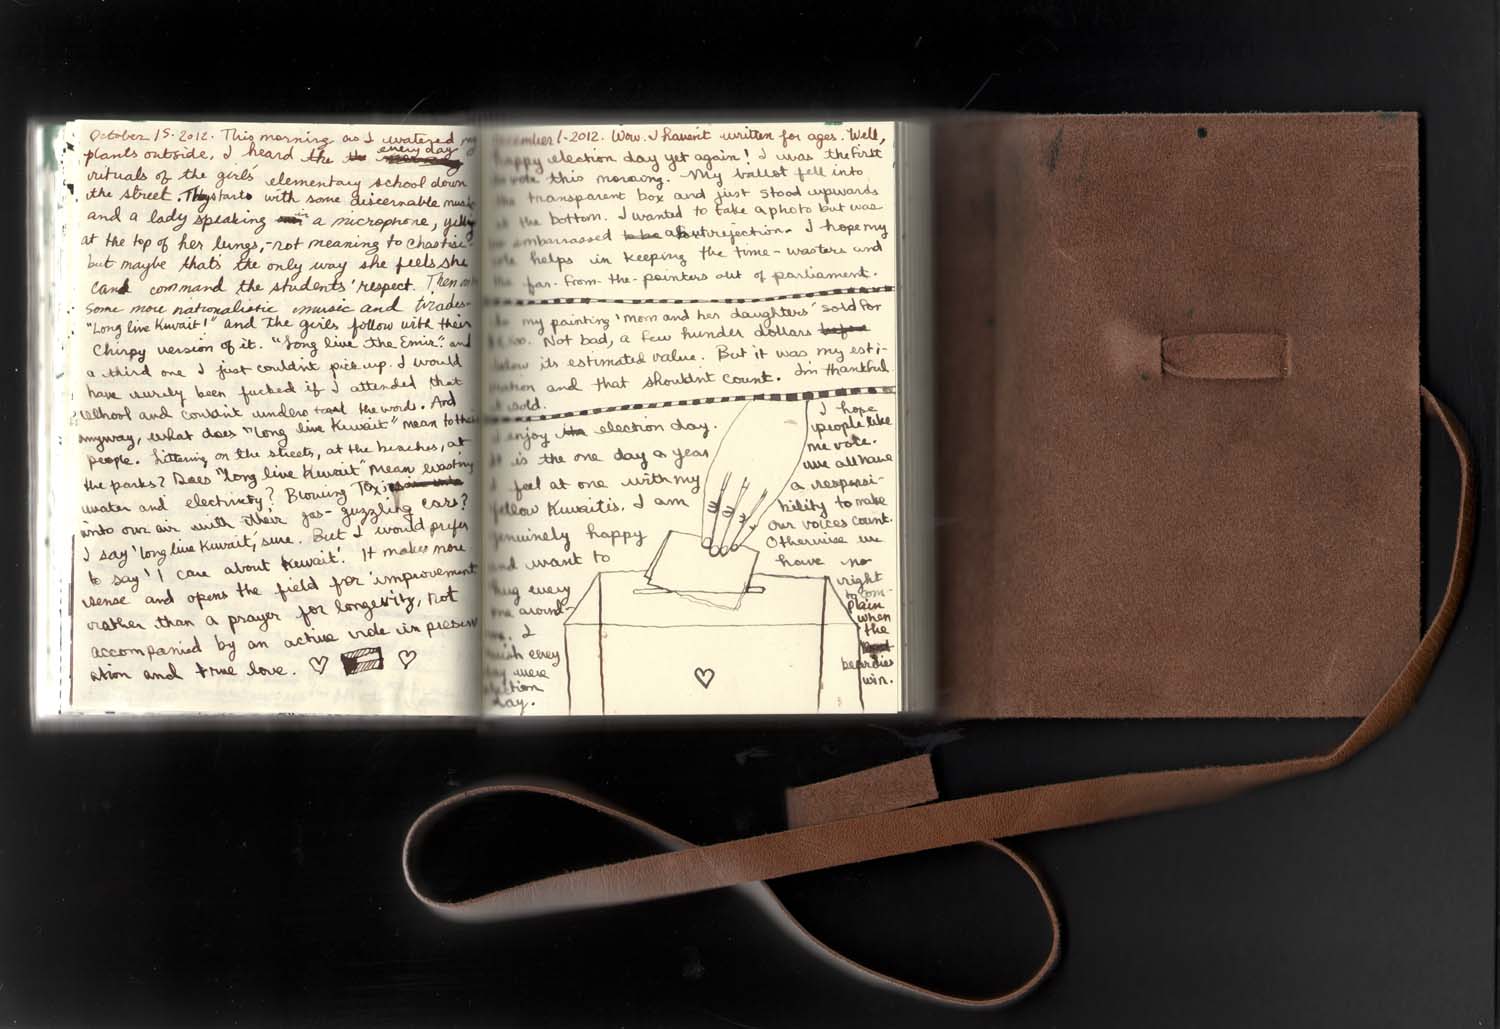 October 15. 2012. This morning as I watered my
plants outside, I heard the every day
rituals of the girls' elementary school down
the street. They starts with some discernable music
and a lady speaking in a microphone, yelling
at the top of her lungs, - not meaning to chastise -
but maybe that's the only way she feels she
can command the students' respect. Then
some more nationalistic music and tirades -
"Long live Kuwait!" and the girls follow with their
chirpy version of it. "Long live the Emir." and
a third one I just couldn't pick up. I would
have surely been fucked if I attended that
school and couldn't understand the words. And
anyway, what does "long live Kuwait" mean to these
people. Littering on the streets, at the beaches, at
the parks? Does "long live Kuwait" mean wasting
water and electricity? Blowing Toxins
into our air with their gas-guzzling cars?
I say 'long live Kuwait', sure. But I would prefer
to say 'I care about Kuwait'. It makes more
sense and opens the field for improvement
rather than a prayer for longevity, not
accompanied by an active role in preserv
ation and true love.
December 1-2012. Wow. I havent written for ages. Well,
happy election day yet again! I was the first
to vote this morning. My ballot fell into
the transparent box and just stood upwards
at the bottom. I wanted to take a photo but was
too embarrassed about rejection. I hope my
vote helps in keeping the time-wasters and
the far-from-the-pointers out of parliament.
my painting 'Mom and her daughters' sold for
Not bad, a few hunder dollars
below its estimated value. But it was my esti-
mation and that shouldn't count. I'm thankful
it sold.
I enjoy election day.
It is the one day a year
I feel at one with my
fellow Kuwaitis. I am
genuinely happy
and want to
hug every
one around
me. I
wish every
day were
election
day.
I hope
people like
me vote.
we all have
a responsi-
bility to make
our voices count.
Otherwise we
have no
right
to com-
plain
when
the
beardies
win.